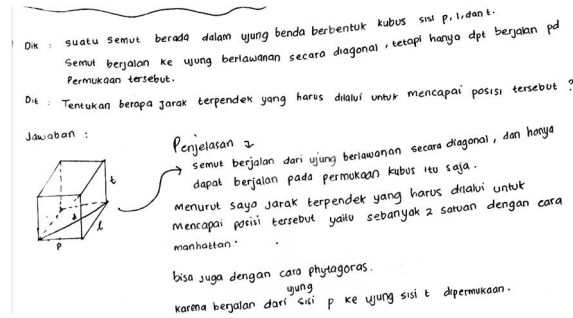 Dik : suatu semut berada dalam ujung benda berbentuk kubus sisi p, l, dan t.
Semut berjalan ke ujung berlawanan secara diagonal, tetapi hanya dpt berjalan pd
Permukaan tersebut.
Dit : Tentukan berapa jarak terpendek yang harus dilalui untuk mencapai posisi tersebut ?
Jawaban :
Penjelasan 2
semut berjalan dari ujung berlawanan secara diagonal, dan hanya
dapat berjalan pada permukaan kubus itu saja.
menurut saya jarak terpendek yang harus dilalui untuk
mencapai posisi tersebut yaitu sebanyak 2 satuan dengan cara
manhattan.
bisa juga dengan cara phytagoras.
ujung
karena berjalan dari sisi p ke ujung sisi t dipermukaan.
t
l
p